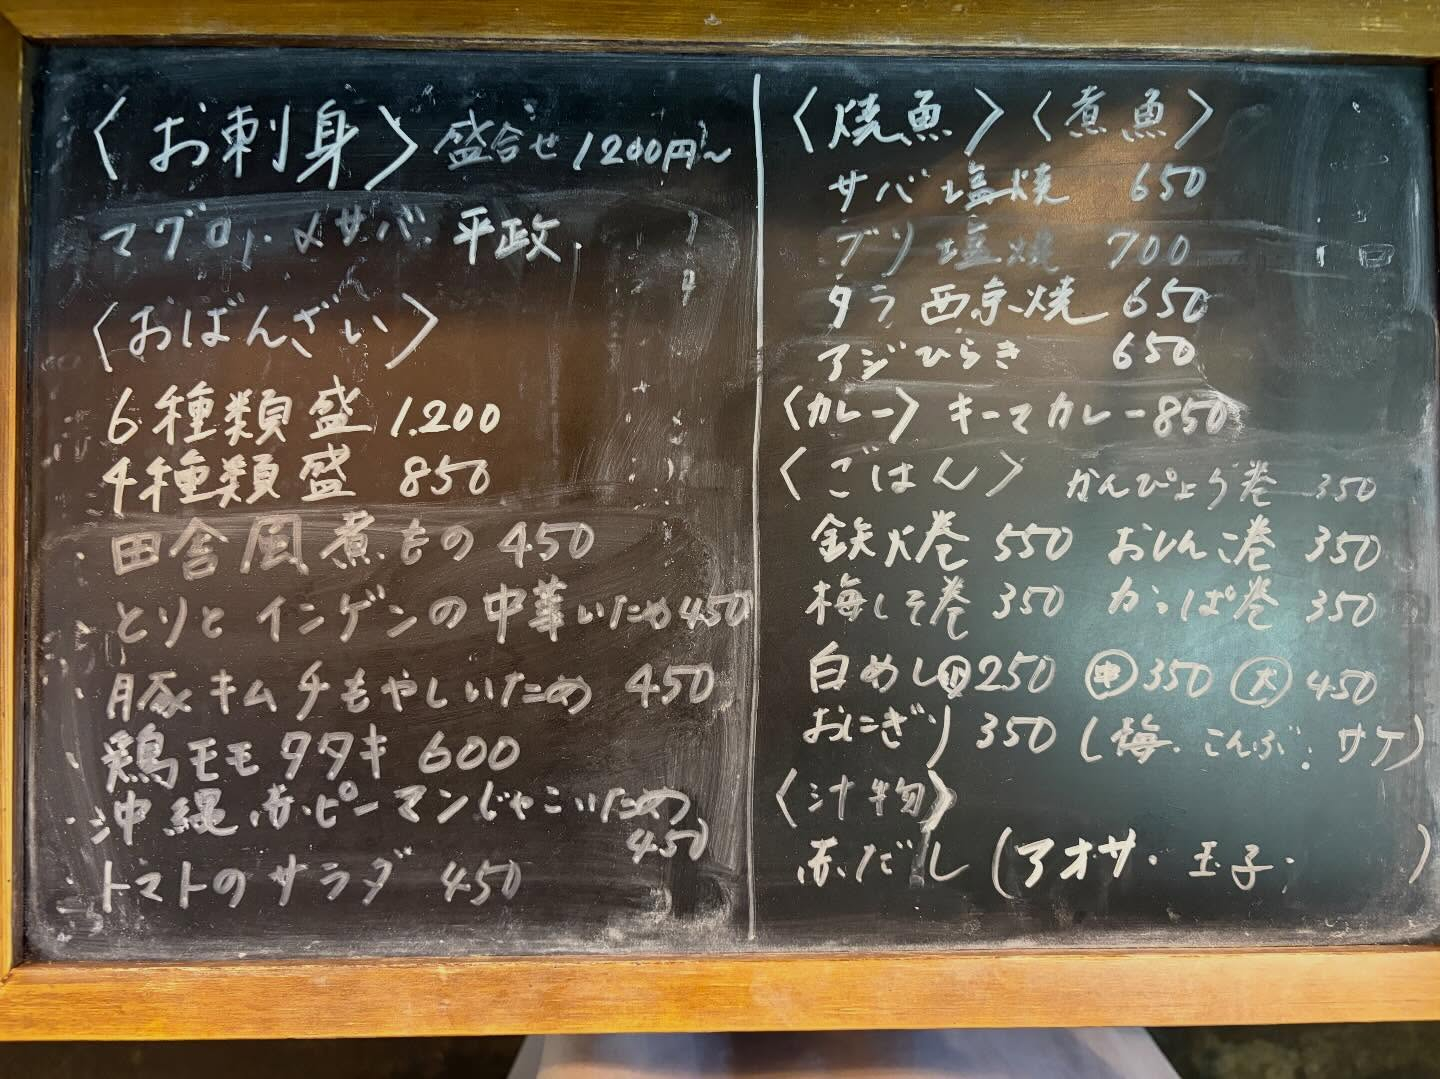 〈お刺身〉盛合せ1200円〜
マグロ、〆サバ、平政、
〈おばんざい〉
6種類盛 1.200
4種類盛 850
・田舎風煮もの 450
・とりとインゲンの中華いため450
・豚キムチもやしいため 450
・鶏モモタタキ 600
・沖縄赤ピーマンじゃこいため
450
・トマトのサラダ 450
〈焼魚〉〈煮魚〉
サバ塩焼 650
ブリ塩焼 700
タラ西京焼 650
アジひらき 650
〈カレー〉キーマカレー850
〈ごはん〉 かんぴょう巻 350
鉄火巻 550 おしんこ巻 350
梅しそ巻 350 かっぱ巻 350
白めし㊙小250 ㊥350 大450
おにぎり 350 (梅・こんぶ・サケ)
〈汁物〉
赤だし (アオサ・玉子・ )